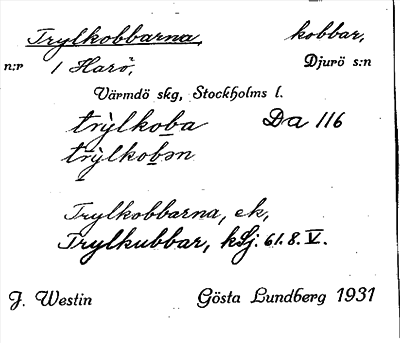 Trylkobbarna, kobbar,
n:r 1 Harö, Djurö s:n
Värmdö skg, Stockholms l.
trỳlkoba Da 116
trỳlkobən
Trylkobbarna, ek,
Trylkubbar, kSj. 61.8.V.
J. Westin Gösta Lundberg 1931